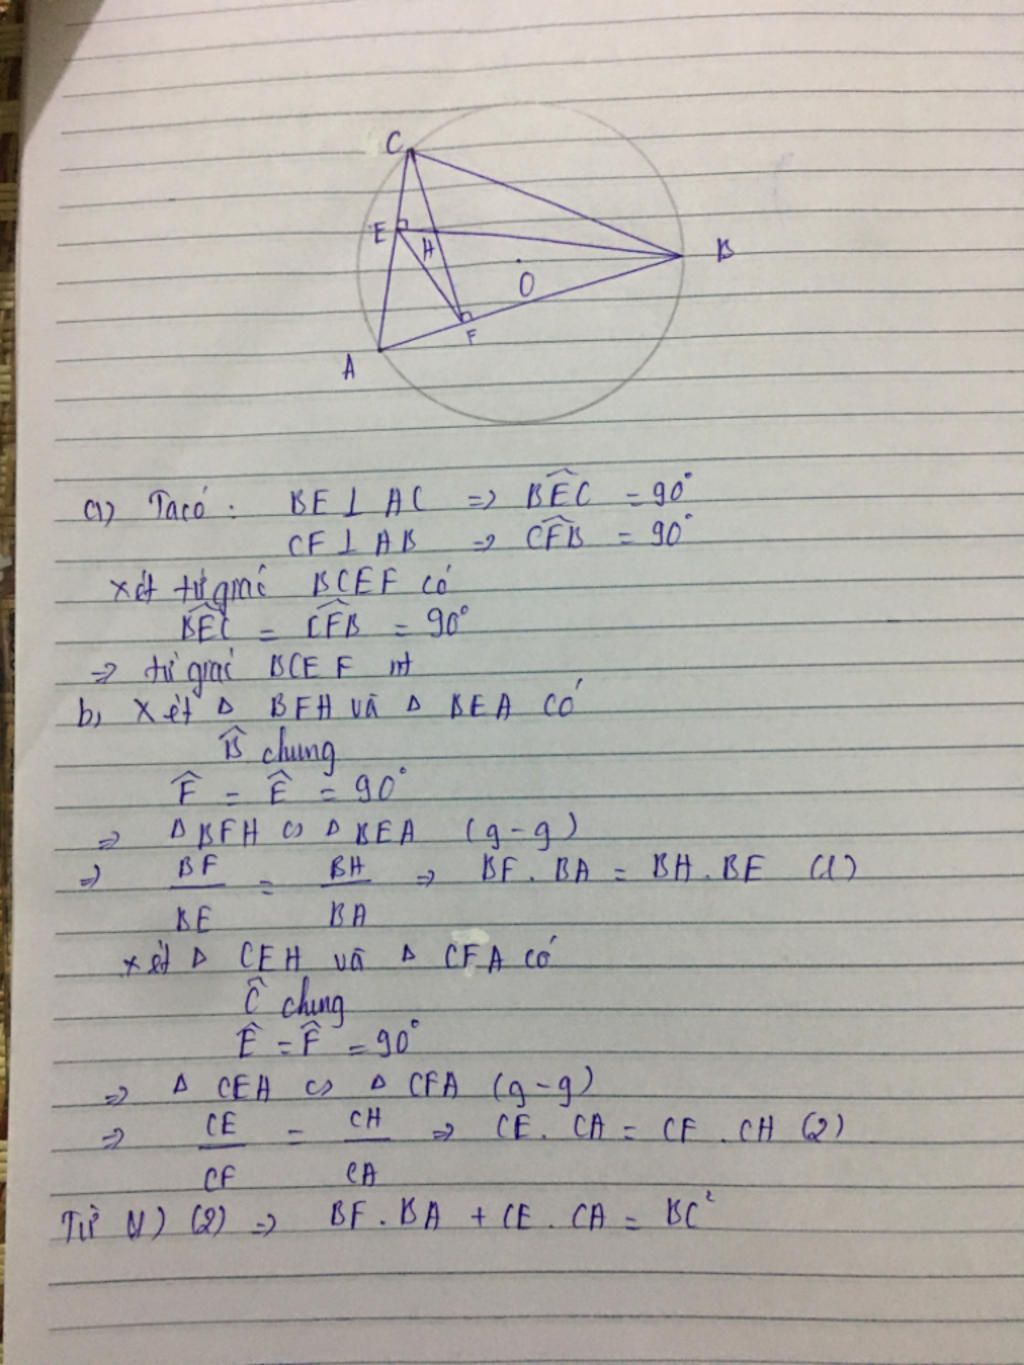 C
E
H
B
O
F
A
a) Ta có : BE ⊥ AC => B̂EC = 90°
CF ⊥ AB => CF̂B = 90°
xét tứ giác BCEF có
BÊC = CF̂B = 90°
=> tứ giác BCEF nt
b, Xét Δ BFH và Δ BEA có
B̂ chung
F̂ = Ê = 90°
=> Δ BFH ∽ Δ BEA (g-g)
=> BF/BE = BH/BA => BF . BA = BH . BE (1)
xét Δ CEH và Δ CFA có
Ĉ chung
Ê = F̂ = 90°
=> Δ CEH ∽ Δ CFA (g-g)
=> CE/CF = CH/CA => CE . CA = CF . CH (2)
Từ (1) (2) => BF . BA + CE . CA = BC²